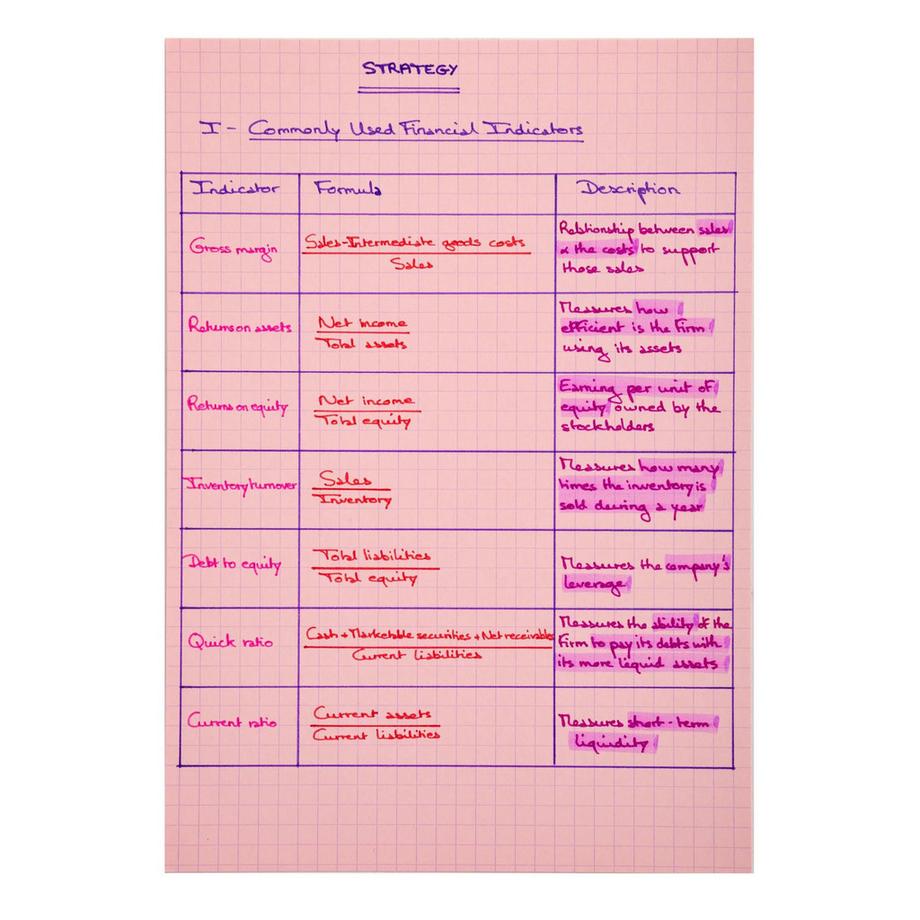 STRATEGY
I - Commonly Used Financial Indicators
Indicator
Formula
Description
Gross margin
Sales-Intermediate goods costs
Sales
Relationship between sales
& the costs to support
those sales
Returns on assets
Net income
Total assets
Measures how
efficient is the Firm
using its assets
Returns on equity
Net income
Total equity
Earning per unit of
equity owned by the
stockholders
Inventory turnover
Sales
Inventory
Measures how many
times the inventory is
sold during a year
Debt to equity
Total liabilities
Total equity
Measures the company's
leverage
Quick ratio
Cash + Marketable securities + Net receivables
Current liabilities
Measures the ability of the
Firm to pay its debts with
its more liquid assets
Current ratio
Current assets
Current liabilities
Measures short-term
liquidity